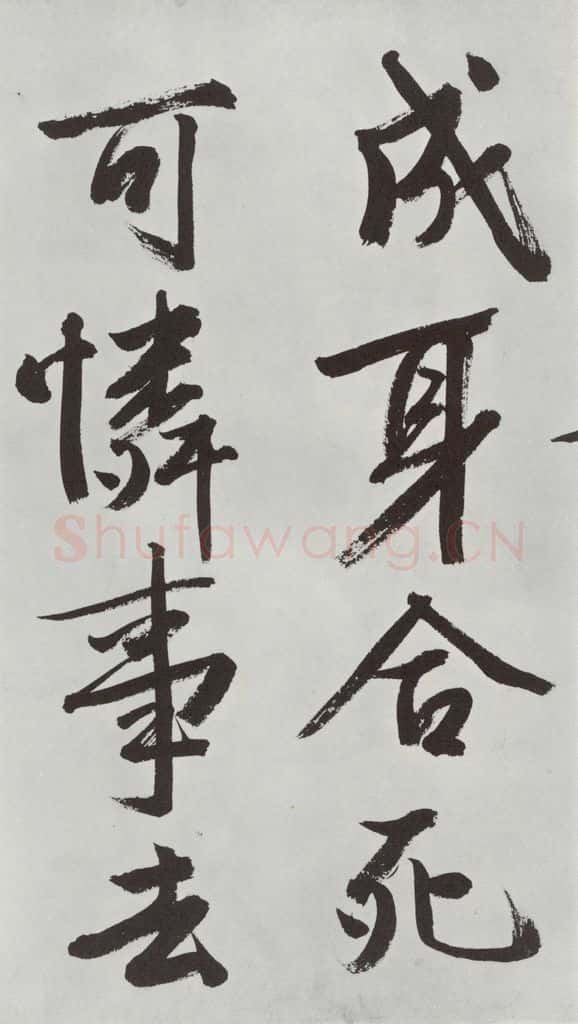 成身合死
可憐事去
Shufawang.CN